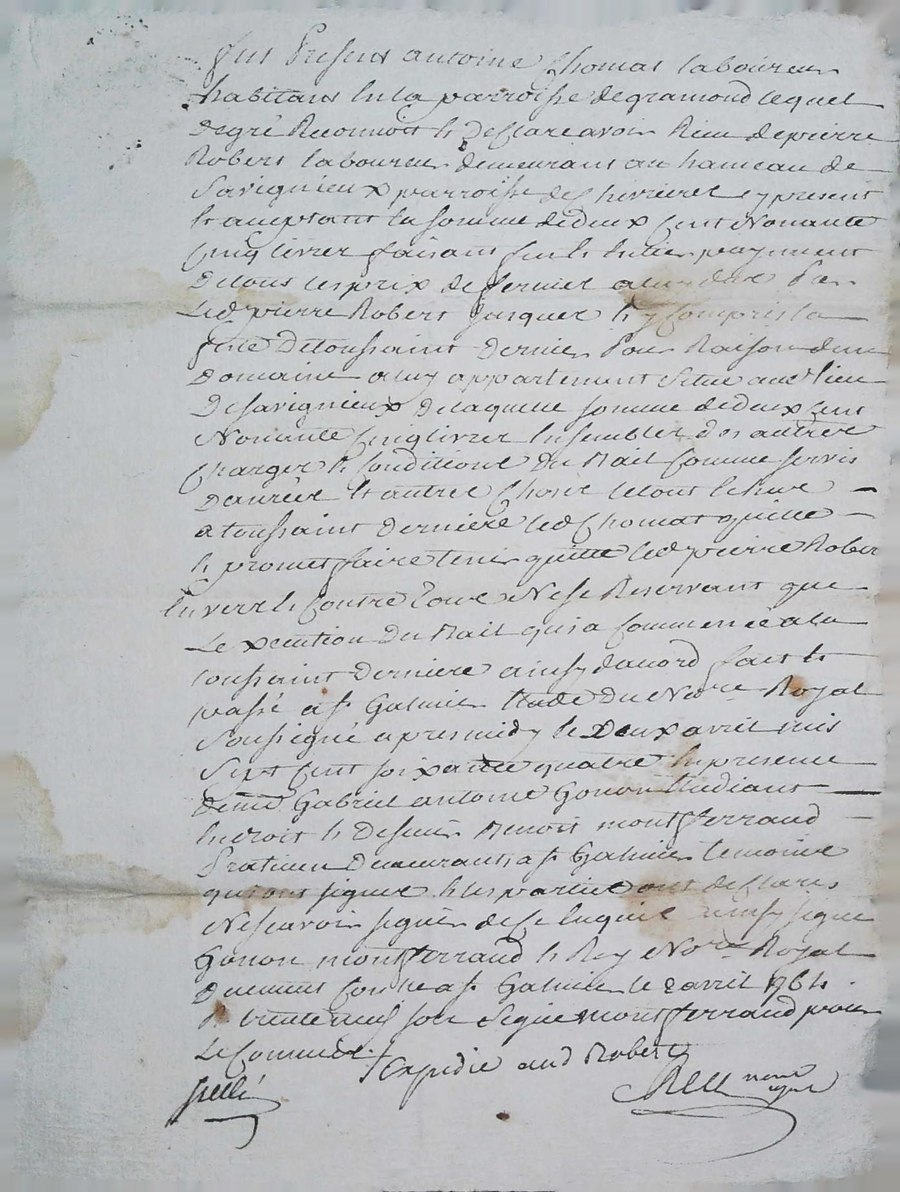 fut Present antoine Thomas laboureur
habitant en la parroisse de gramond lequel
de gré Reconnoit et desclare avoir Receu de pierre
Robert laboureur demeurant au hameau de
Savignieux parroisse de chivrieres y present
et acceptant la somme de deux cent Nonante
cinq livres faisant payement
De tous les prix de fermes a luy deub Par
Led pierre Robert Jusques et y Compris la
fete De toussaint derniere Pour Raison d'un
Domaine a luy appartenant Situé aud lieu
De savignieux De laquelle somme de deux cent
Nonante cinq livres Ensembles des autres
Charges et Conditions Du Bail Comme servis
Danrées et autres Choses le tout Echeue
a toussaint Derniere led Thomas quitte
et promet faire tenir quitte led pierre Robert
Envers et Contre Tous Ne se Reservant que
Lexecution Du Bail qui a Commencé a la
toussaint Derniere ainsy dacord fait et
passé a St Galmier Etude Du Nore Royal
Soussigné apres midy le Deux avril mis
Sept Cent soixante quatre En presence
De me Gabriel antoine Gonon Etudiant
En droit et De sieur Benoit montferrand
Praticien Demeurants a St Galmier temoins
qui ont signés et les parties ont desclaré
Ne scavoir signer de ce Enquis ainsy signé
Gonon montferrand et Rey Nore Royal
Duement Controlé a St Galmier le 2 avril 1764
R trente neuf sols Signé montferrand pour
Le Commis
Expedié aud Robert
Scellé